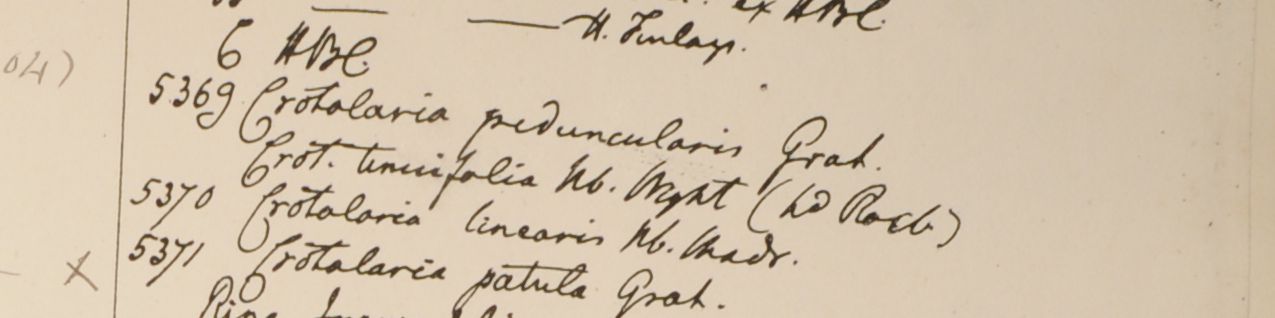 ex HBC.
— H. Finlays.
6 HBC
04)
5369 Crotalaria peduncularis Grah.
Crot. tenuifolia Hb. Wight (hd Roxb)
5370 Crotalaria linearis Hb. Madr.
5371 Crotalaria patula Grah.
X